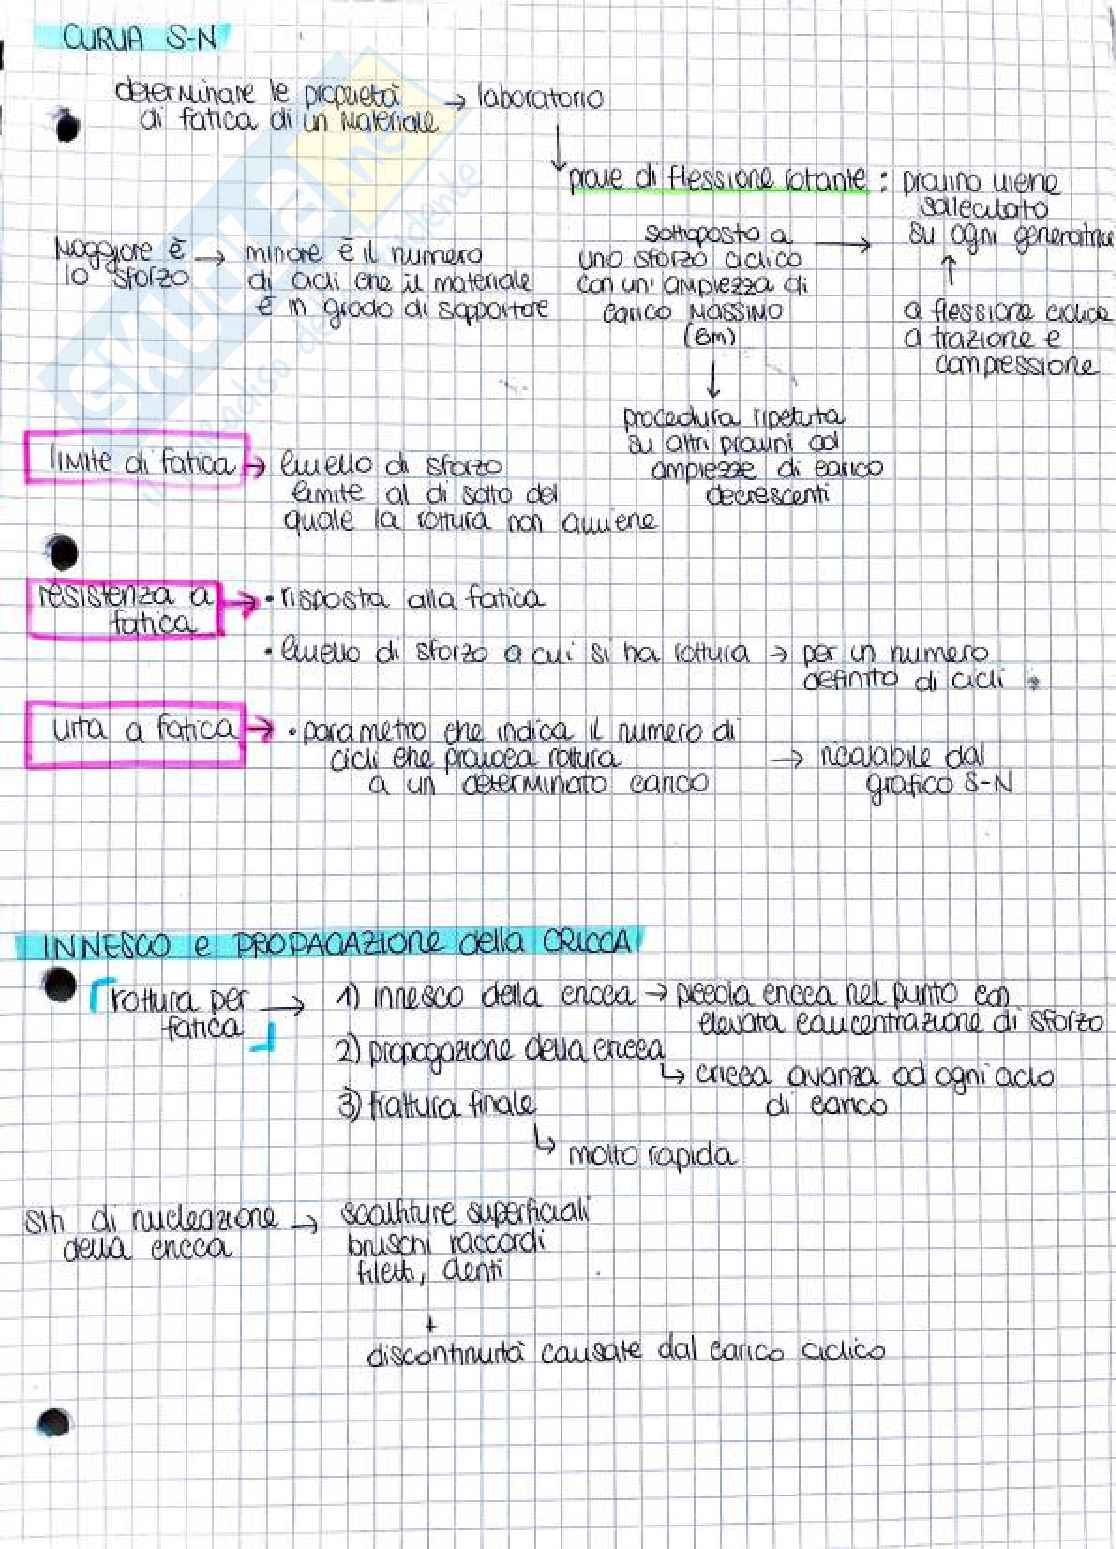 CURVA S-N
determinare le proprietà → laboratorio
di fatica di un materiale
prove di flessione rotante : provino viene
sollecitato
su ogni generatrice
sottoposto a →
uno sforzo ciclico
con un' ampiezza di
carico massimo
(σm)
a flessione ciclica
a trazione e
compressione
Maggiore è → minore è il numero
lo sforzo di cicli che il materiale
è in grado di sopportare
procedura ripetuta
su altri provini ad
ampiezze di carico
decrescenti
limite di fatica → livello di sforzo
limite al di sotto del
quale la rottura non avviene
resistenza a → • risposta alla fatica
fatica
• livello di sforzo a cui si ha rottura → per un numero
definito di cicli
vita a fatica → • parametro che indica il numero di
cicli che provoca rottura → ricavabile dal
a un determinato carico grafico S-N
INNESCO e PROPAGAZIONE della CRICCA
rottura per → 1) innesco della cricca → piccola cricca nel punto con
fatica elevata concentrazione di sforzo
2) propagazione della cricca
↳ cricca avanza ad ogni ciclo
di carico
3) frattura finale
↳ molto rapida
siti di nucleazione → scalfiture superficiali
della cricca bruschi raccordi
filetti, denti
+
discontinuità causate dal carico ciclico